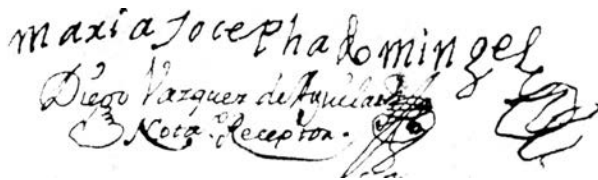 maria Josepha domingel
Diego Vazquez de Aguilar
Nota.º Receptor.